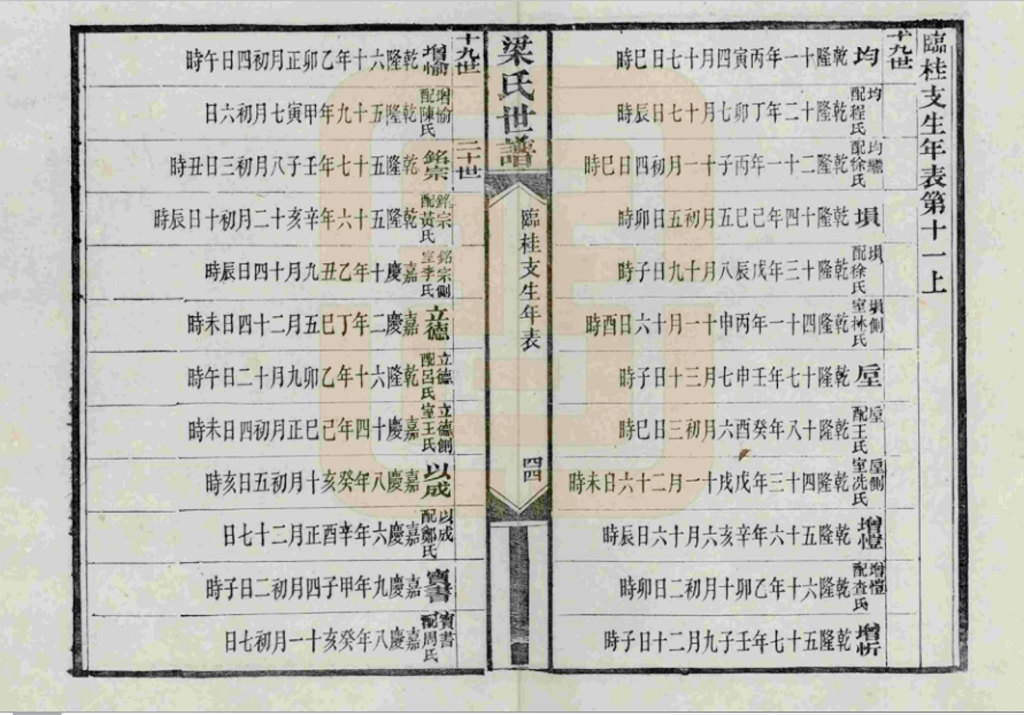 臨桂支生年表第十一上
十九世
均 乾隆十一年丙寅四月十七日巳時
均配程氏 乾隆十二年丁卯七月十七日辰時
均繼配徐氏 乾隆二十一年丙子十一月初四日巳時
塤 乾隆十四年己巳五月初五日卯時
塤配徐氏 乾隆十三年戊辰八月十九日子時
塤側室林氏 乾隆四十一年丙申十一月十六日酉時
垕 乾隆十七年壬申七月十三日子時
垕配王氏 乾隆十八年癸酉六月初三日巳時
垕側室冼氏 乾隆四十三年戊戌十一月二十六日未時
增愷 乾隆五十六年辛亥六月十六日辰時
增愷配查氏 乾隆六十年乙卯十月初二日卯時
增忻 乾隆五十七年壬子九月二十日子時
梁氏世譜
臨桂支生年表
四四
十九世
增愉 乾隆六十年乙卯正月初四日午時
增愉配陳氏 乾隆五十九年甲寅七月初六日
二十世
銘宗 乾隆五十七年壬子八月初三日丑時
銘宗配黃氏 乾隆五十六年辛亥十二月初十日辰時
銘宗側室李氏 嘉慶十年乙丑九月十四日辰時
立德 嘉慶二年丁巳五月二十四日未時
立德配呂氏 乾隆六十年乙卯九月十二日午時
立德側室王氏 嘉慶十四年己巳正月初四日未時
以成 嘉慶八年癸亥十月初五日亥時
以成配鄭氏 嘉慶六年辛酉正月二十七日
寶書 嘉慶九年甲子四月初二日子時
寶書配周氏 嘉慶八年癸亥十一月初七日